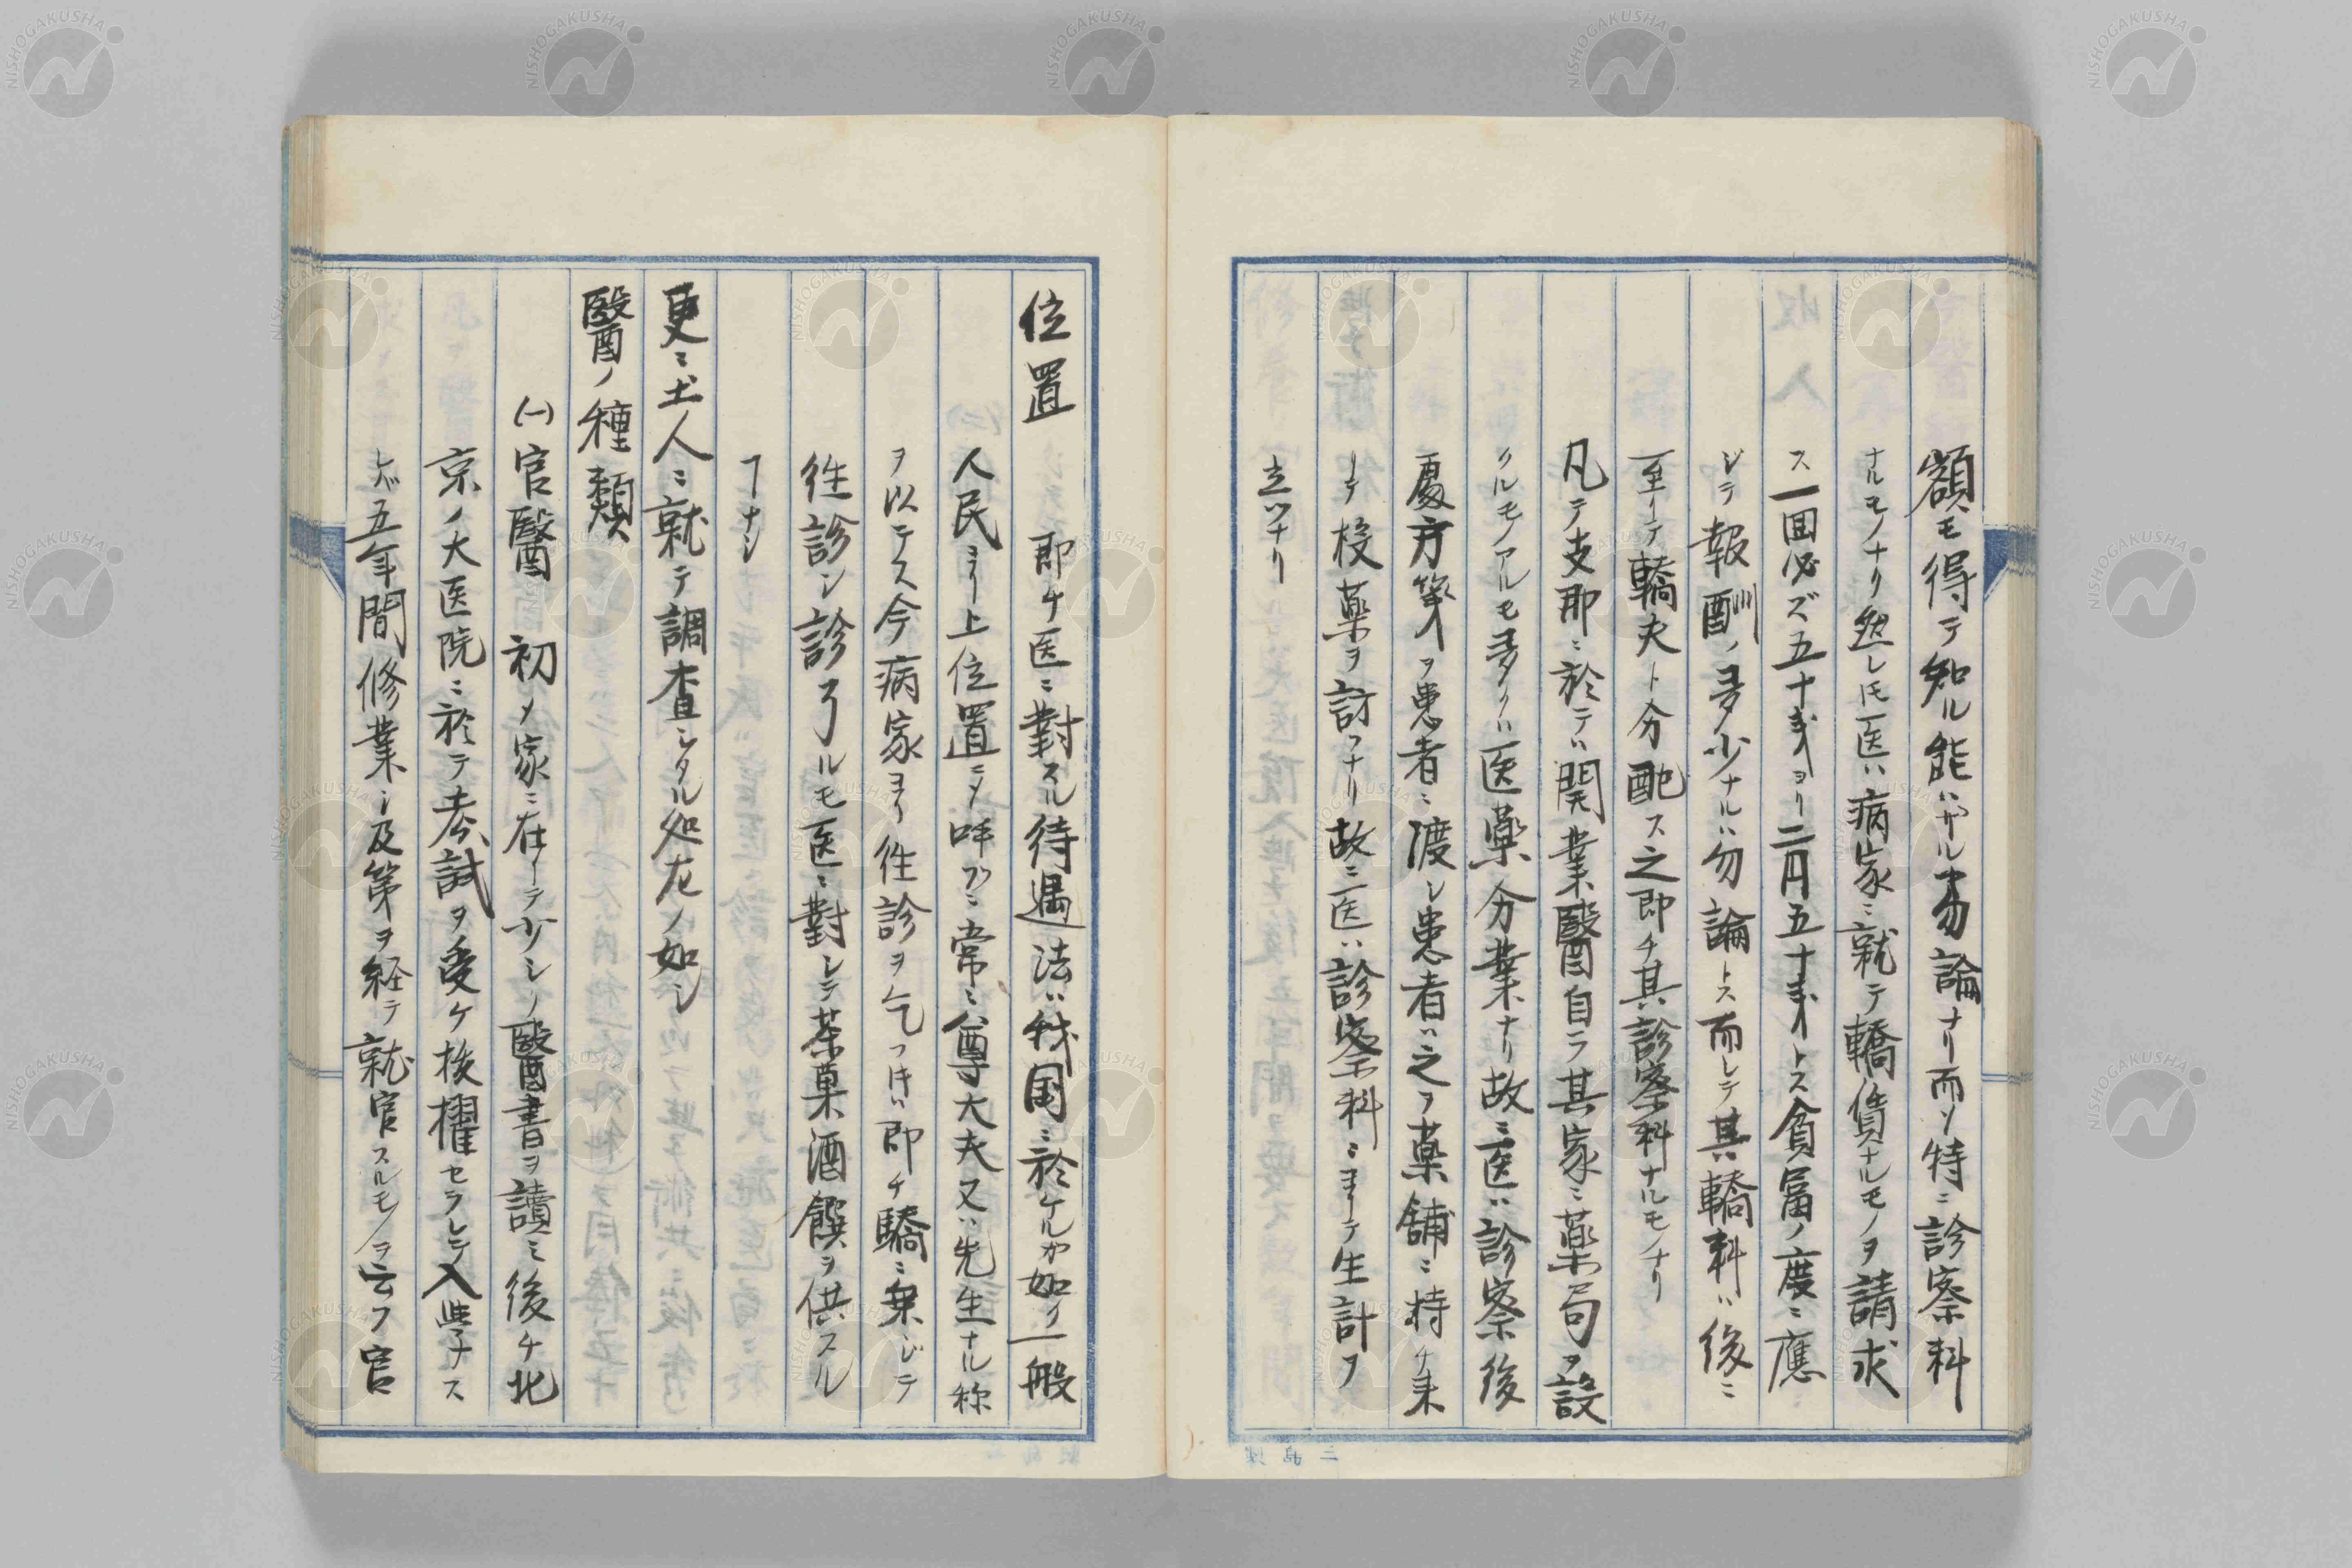 額モ得テ知ル能ハザル勿論ナリ而ソ特ニ診察料
ナルモノナリ然レ𪜈医ハ病家ニ就テ轎賃ナルモノヲ請求
ス一回必ズ五十銭ヨリ二円五十銭トス貧富ノ度ニ應
ジテ報酬ノ多少ナルハ勿論トス而レテ其轎料ハ後ニ
至リテ轎夫ト分配ス之即チ其診察料ナルモノナリ
凡テ支那ニ於テハ開業醫自ラ其家ニ薬局ヲ設
クルモノアルモ多クハ医薬分業ナリ故ニ医ハ診察後
處方箋ヲ患者ニ渡シ患者ハ之ヲ薬舗ニ持チ来
リテ投薬ヲ討フナリ故ニ医ハ診察料ニヨリテ生計ヲ
立ツナリ
位置 即チ医ニ對スル待遇法ハ我国ニ於ケルカ如ク一般
人民ヨリ上位置ニメ呼ブニ常ニ尊大夫又ハ先生ナル称
ヲ以テス今病家ヨリ往診ヲ乞フ𪜈ハ即チ驕ニ乗ジテ
往診シ診了ルモ医ニ對シテ茶菓酒饌ヲ供スル
ヿナシ
更ニ土人ニ就テ調査シタル処左ノ如シ
醫ノ種類
(一)官醫 初メ家ニ在リテ少シク醫書ヲ讀ミ後チ北
京ノ大医院ニ於テ考試ヲ受ケ抜擢セラレテ入学ナス
レバ五年間修業シ及第ヲ経テ就官スルモノヲ云フ官